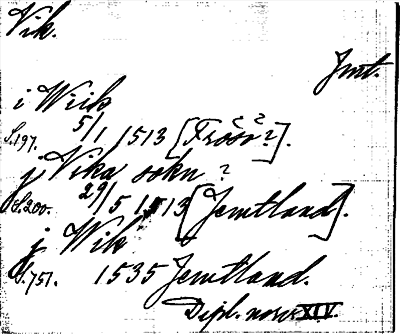 Vik.
Jmt.
i Wiik
S.197. 5/1 1513 [Frösö?].
j Vika sokn ?
S.200. 29/5 1513 [Jemtland].
j Wik
S.751. 1535 Jemtland.
Dipl. norv. XIV.